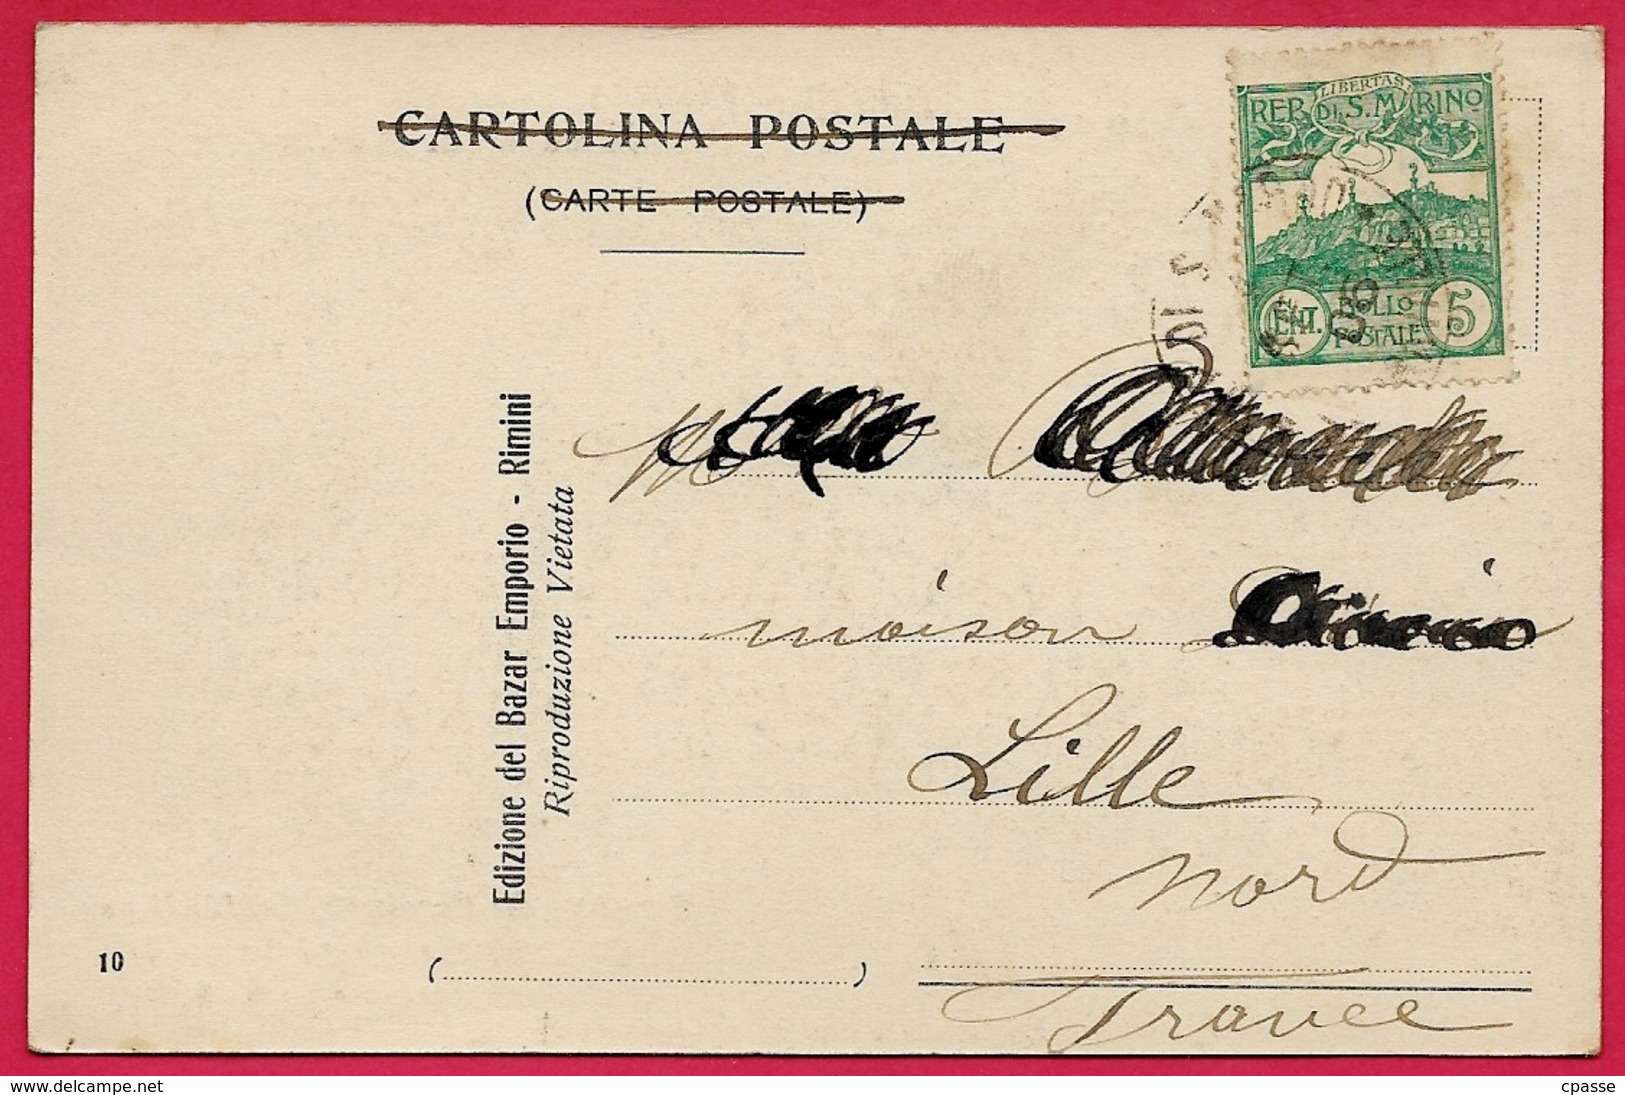 CARTOLINA POSTALE
(CARTE POSTALE)
LIBERTAS
REP. DI S. MARINO
CENT. BOLLO POSTALE 5
DI S. MARINO
Edizione del Bazar Emporio - Rimini
Riproduzione Vietata
maison
Lille
Nord
France
10
delcampe.net
cpasse